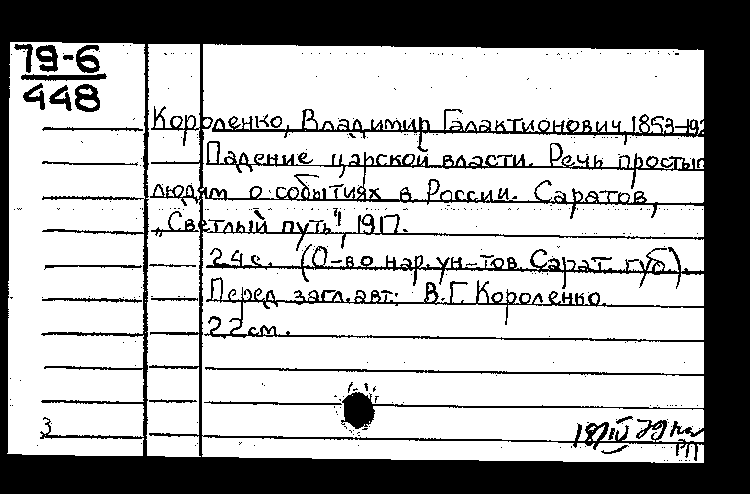 79-6
448
Короленко, Владимир Галактионович, 1853-192
Падение царской власти. Речь простым
людям о событиях в России. Саратов,
„Светлый путь", 1917.
24 с. (О-во нар. ун-тов Сарат. губ.).
Перед загл. авт: В.Г. Короленко.
22 см.
3
РП